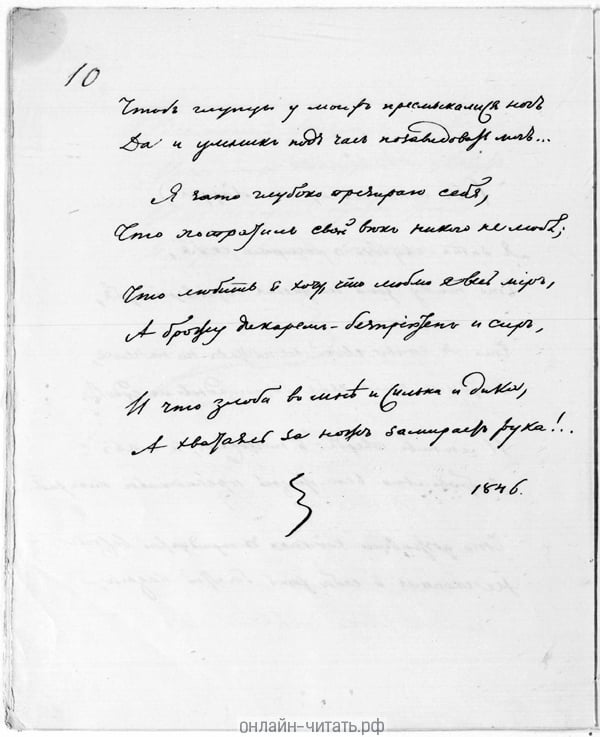 10
Чтобъ глупцы у моихъ пресмыкались ногъ
Да и умникъ подъ часъ позавидовать могъ...
Я зато глубоко презираю себя,
Что потратилъ свой вѣкъ никого не любя;
Что любить я хочу, что люблю я весь міръ,
А брожу дикаремъ - безпріютенъ и сиръ,
И что злоба во мнѣ и сильна и дика,
А хватаясь за ножъ замираетъ рука!..
1846.
онлайн-читать.рф